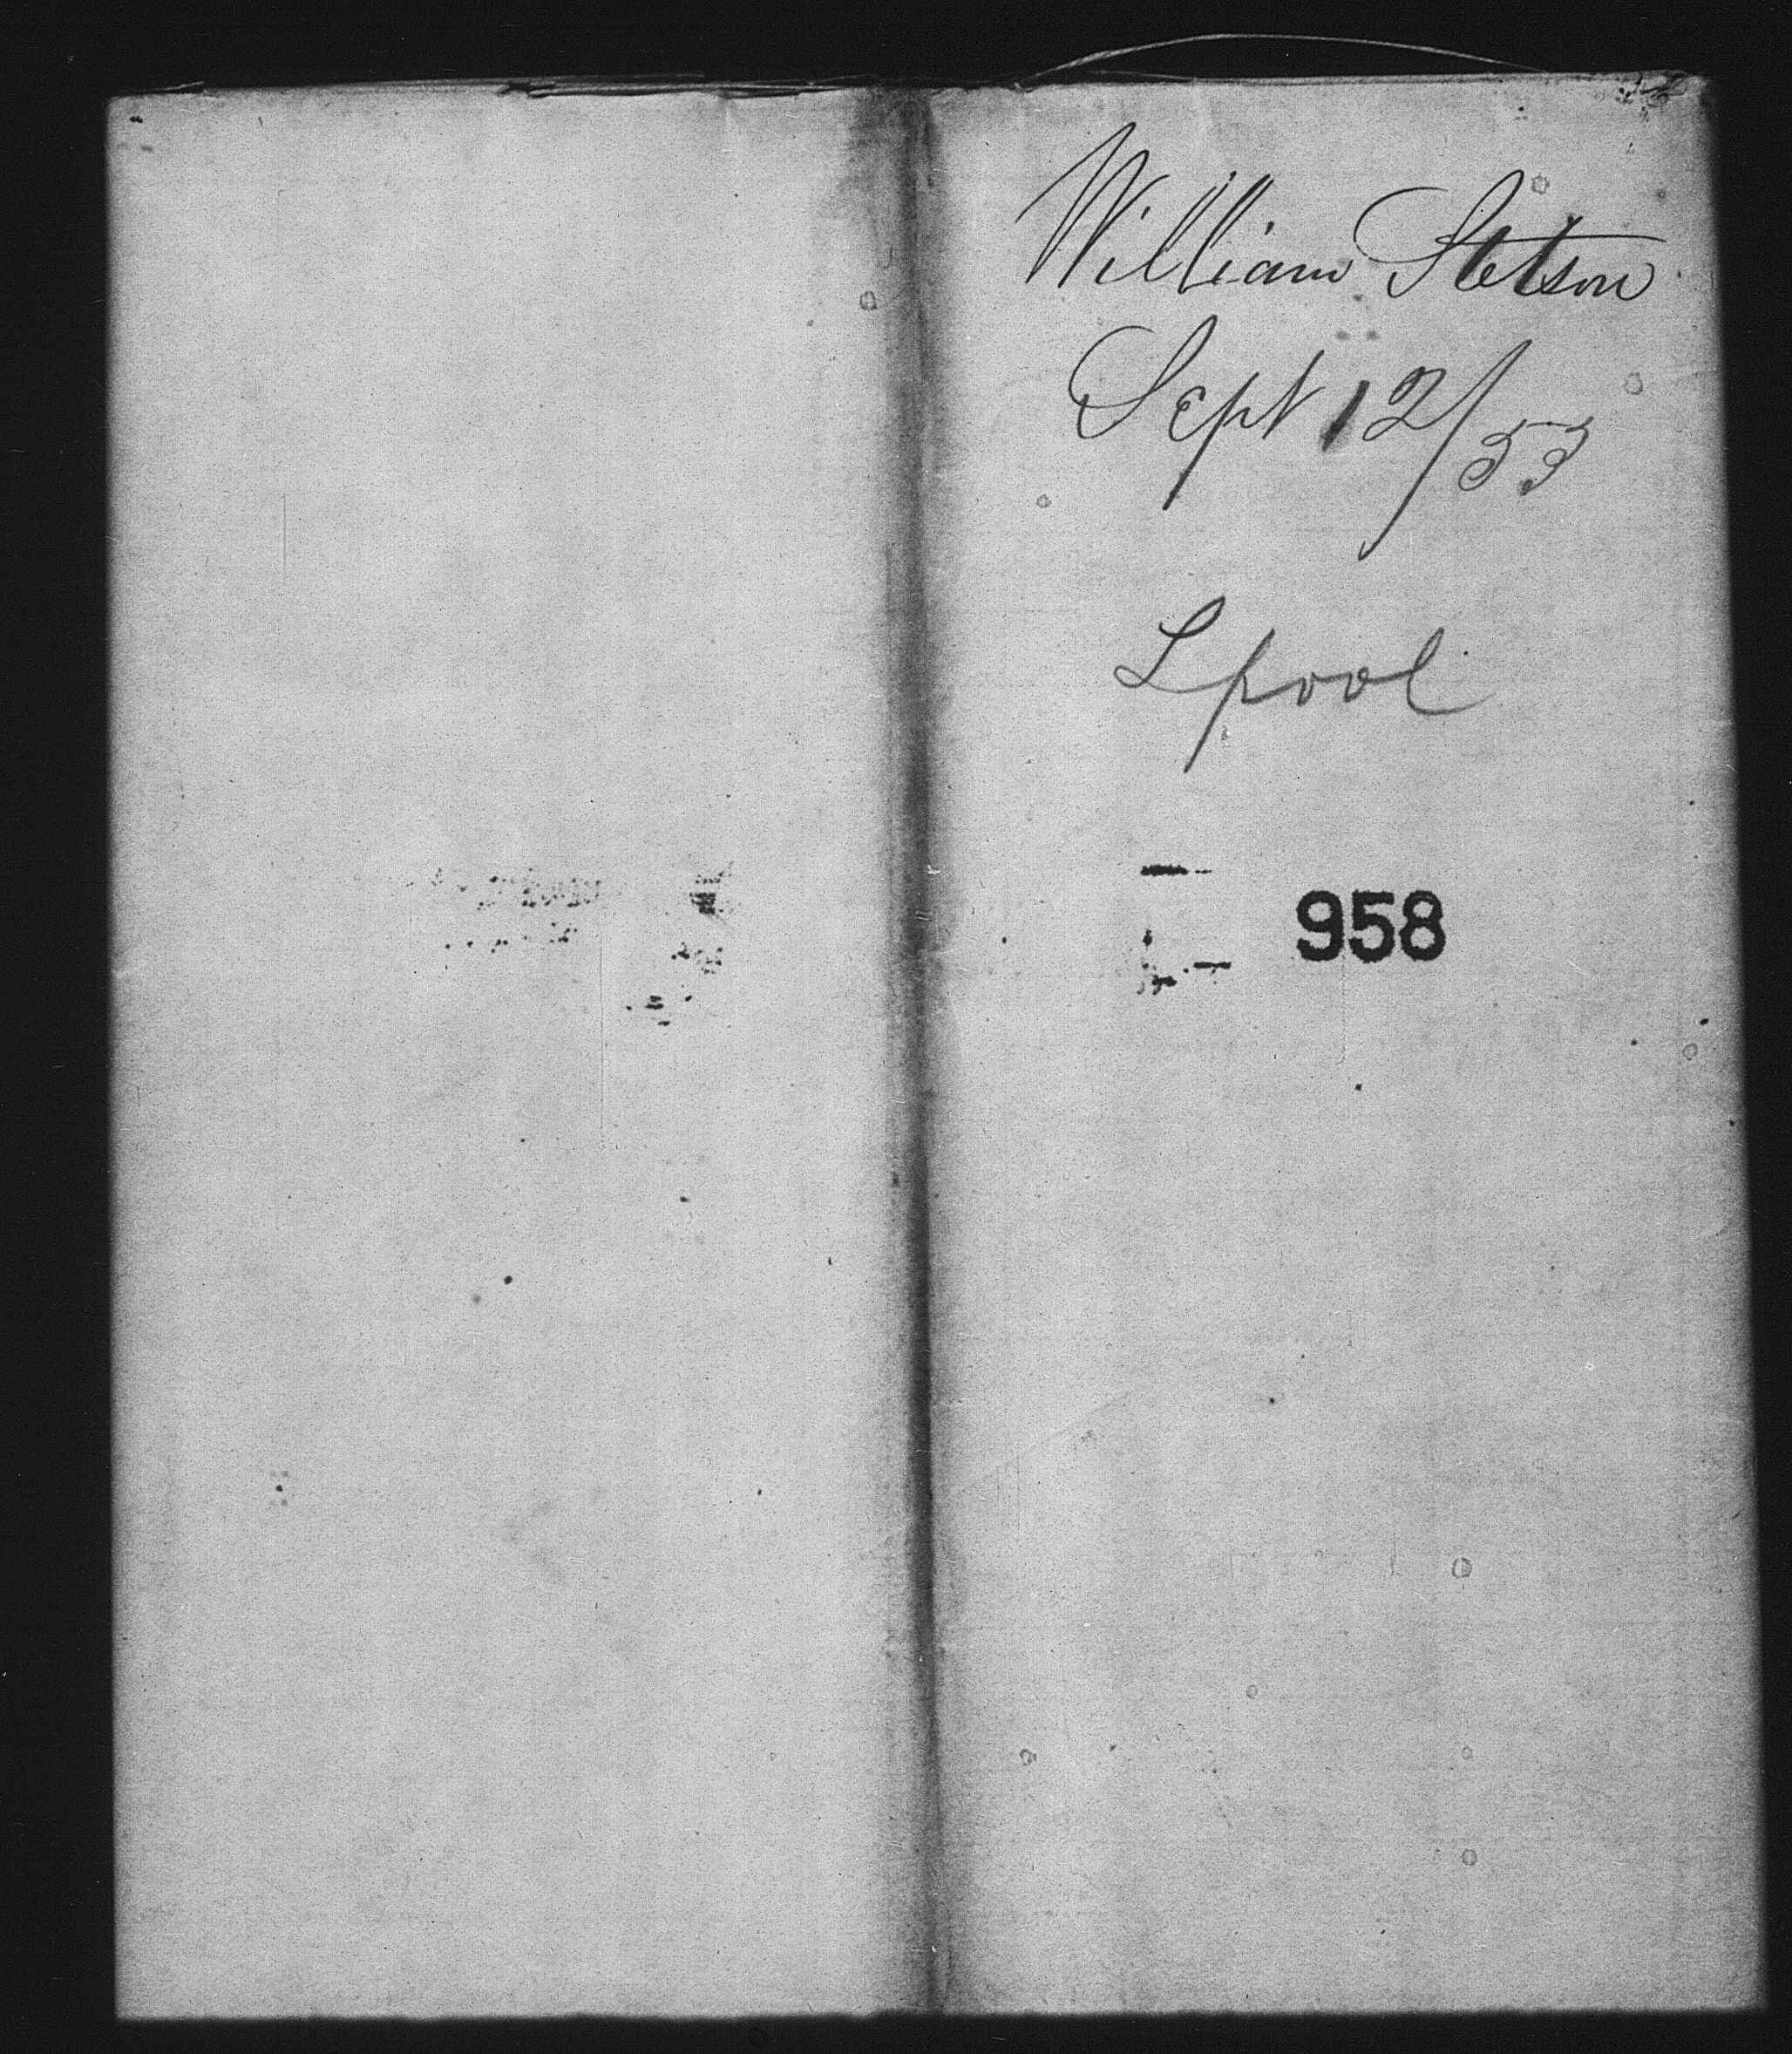 William Stetson
Sept 12/53
Lpool
958